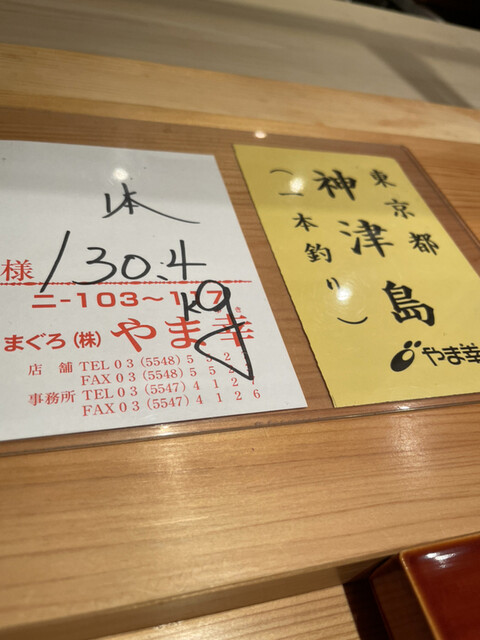 様
130.4
kg
ニ-103~117
まぐろ(株) やま幸
店舗 TEL 03 (5548) 5
FAX 03 (5548) 5
事務所 TEL 03 (5547) 4127
FAX 03 (5547) 4126
東京都
神津島
(一本釣り)
やま幸